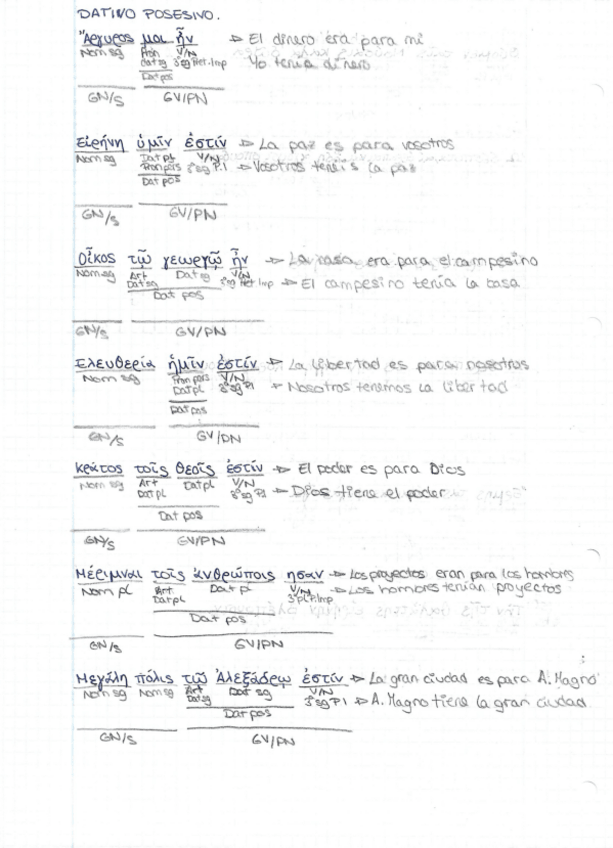 DATIVO POSESIVO.
Ἄργυρος μοι ἦν → El dinero era para mi
Nom sg Pron V/N Yo tenía dinero
dat sg 3ªsg Pret. Imp
Dat pos
GN/S GV/PN
Εἰρήνη ὑμῖν ἐστίν → La paz es para vosotros
Nom sg Dat pl V/N
Pron pers 3ªsg P.I → Vosotros tenéis la paz
Dat pos
GN/S GV/PN
Οἶκος τῷ γεωργῷ ἦν → La casa era para el campesino
Nom sg Art Dat sg V/N
Dat sg 3ªsg Pret Imp → El campesino tenía la casa
Dat pos
GN/S GV/PN
Ἐλευθερία ἡμῖν ἐστίν → La libertad es para nosotros
Nom sg Pron pers V/N
Dat pl 3ªsg PI → Nosotros tenemos la libertad
Dat pos
GN/S GV/PN
κράτος τοῖς θεοῖς ἐστίν → El poder es para Dios
Nom sg Art Dat pl V/N
Dat pl 3ªsg PI → Dios tiene el poder
Dat pos
GN/S GV/PN
Μέριμναι τοῖς ἀνθρώποις ησαν → Los proyectos eran para los hombres
Nom pl Art Dat pl V/N → Los hombres tenían proyectos
Dat pl 3ªpl P. Imp
Dat pos
GN/S GV/PN
Μεγάλη πόλις τῷ Ἀλεξάδρῳ ἐστίν → La gran ciudad es para A. Magno
Nom sg Nom sg Art Dat sg V/N
Dat sg 3ªsg PI → A. Magno tiene la gran ciudad
Dat pos
GN/S GV/PN